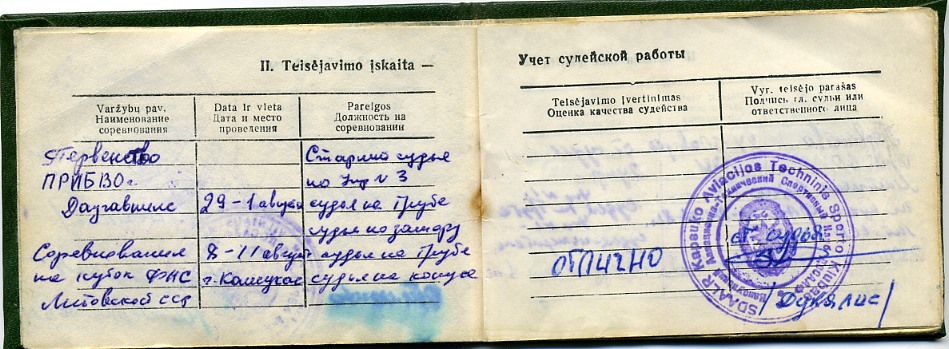 II. Teisėjavimo įskaita —
Varžybų pav.
Наименование
соревнования
Data ir vieta
Дата и место
проведения
Pareigos
Должность на
соревновании
Первенство
ПРИБВО
Даугавпилс
29-1 август
судья на Трубе
судья на
Соревнование
на кубок ФАС
Литовской сср
8-11 август
г. Каунас
судья на Трубе
судья на конусе
Учет судейской работы
Teisėjavimo įvertinimas
Оценка качества судейства
Vyr. teisėjo parašas
Подпись гл. судьи или
ответственного лица
ОТЛИЧНО
гл. судья
SDAALR Kauno Aviacijos Techninis Sporto Klubas
Авиационно-Технический Спортивный Клуб